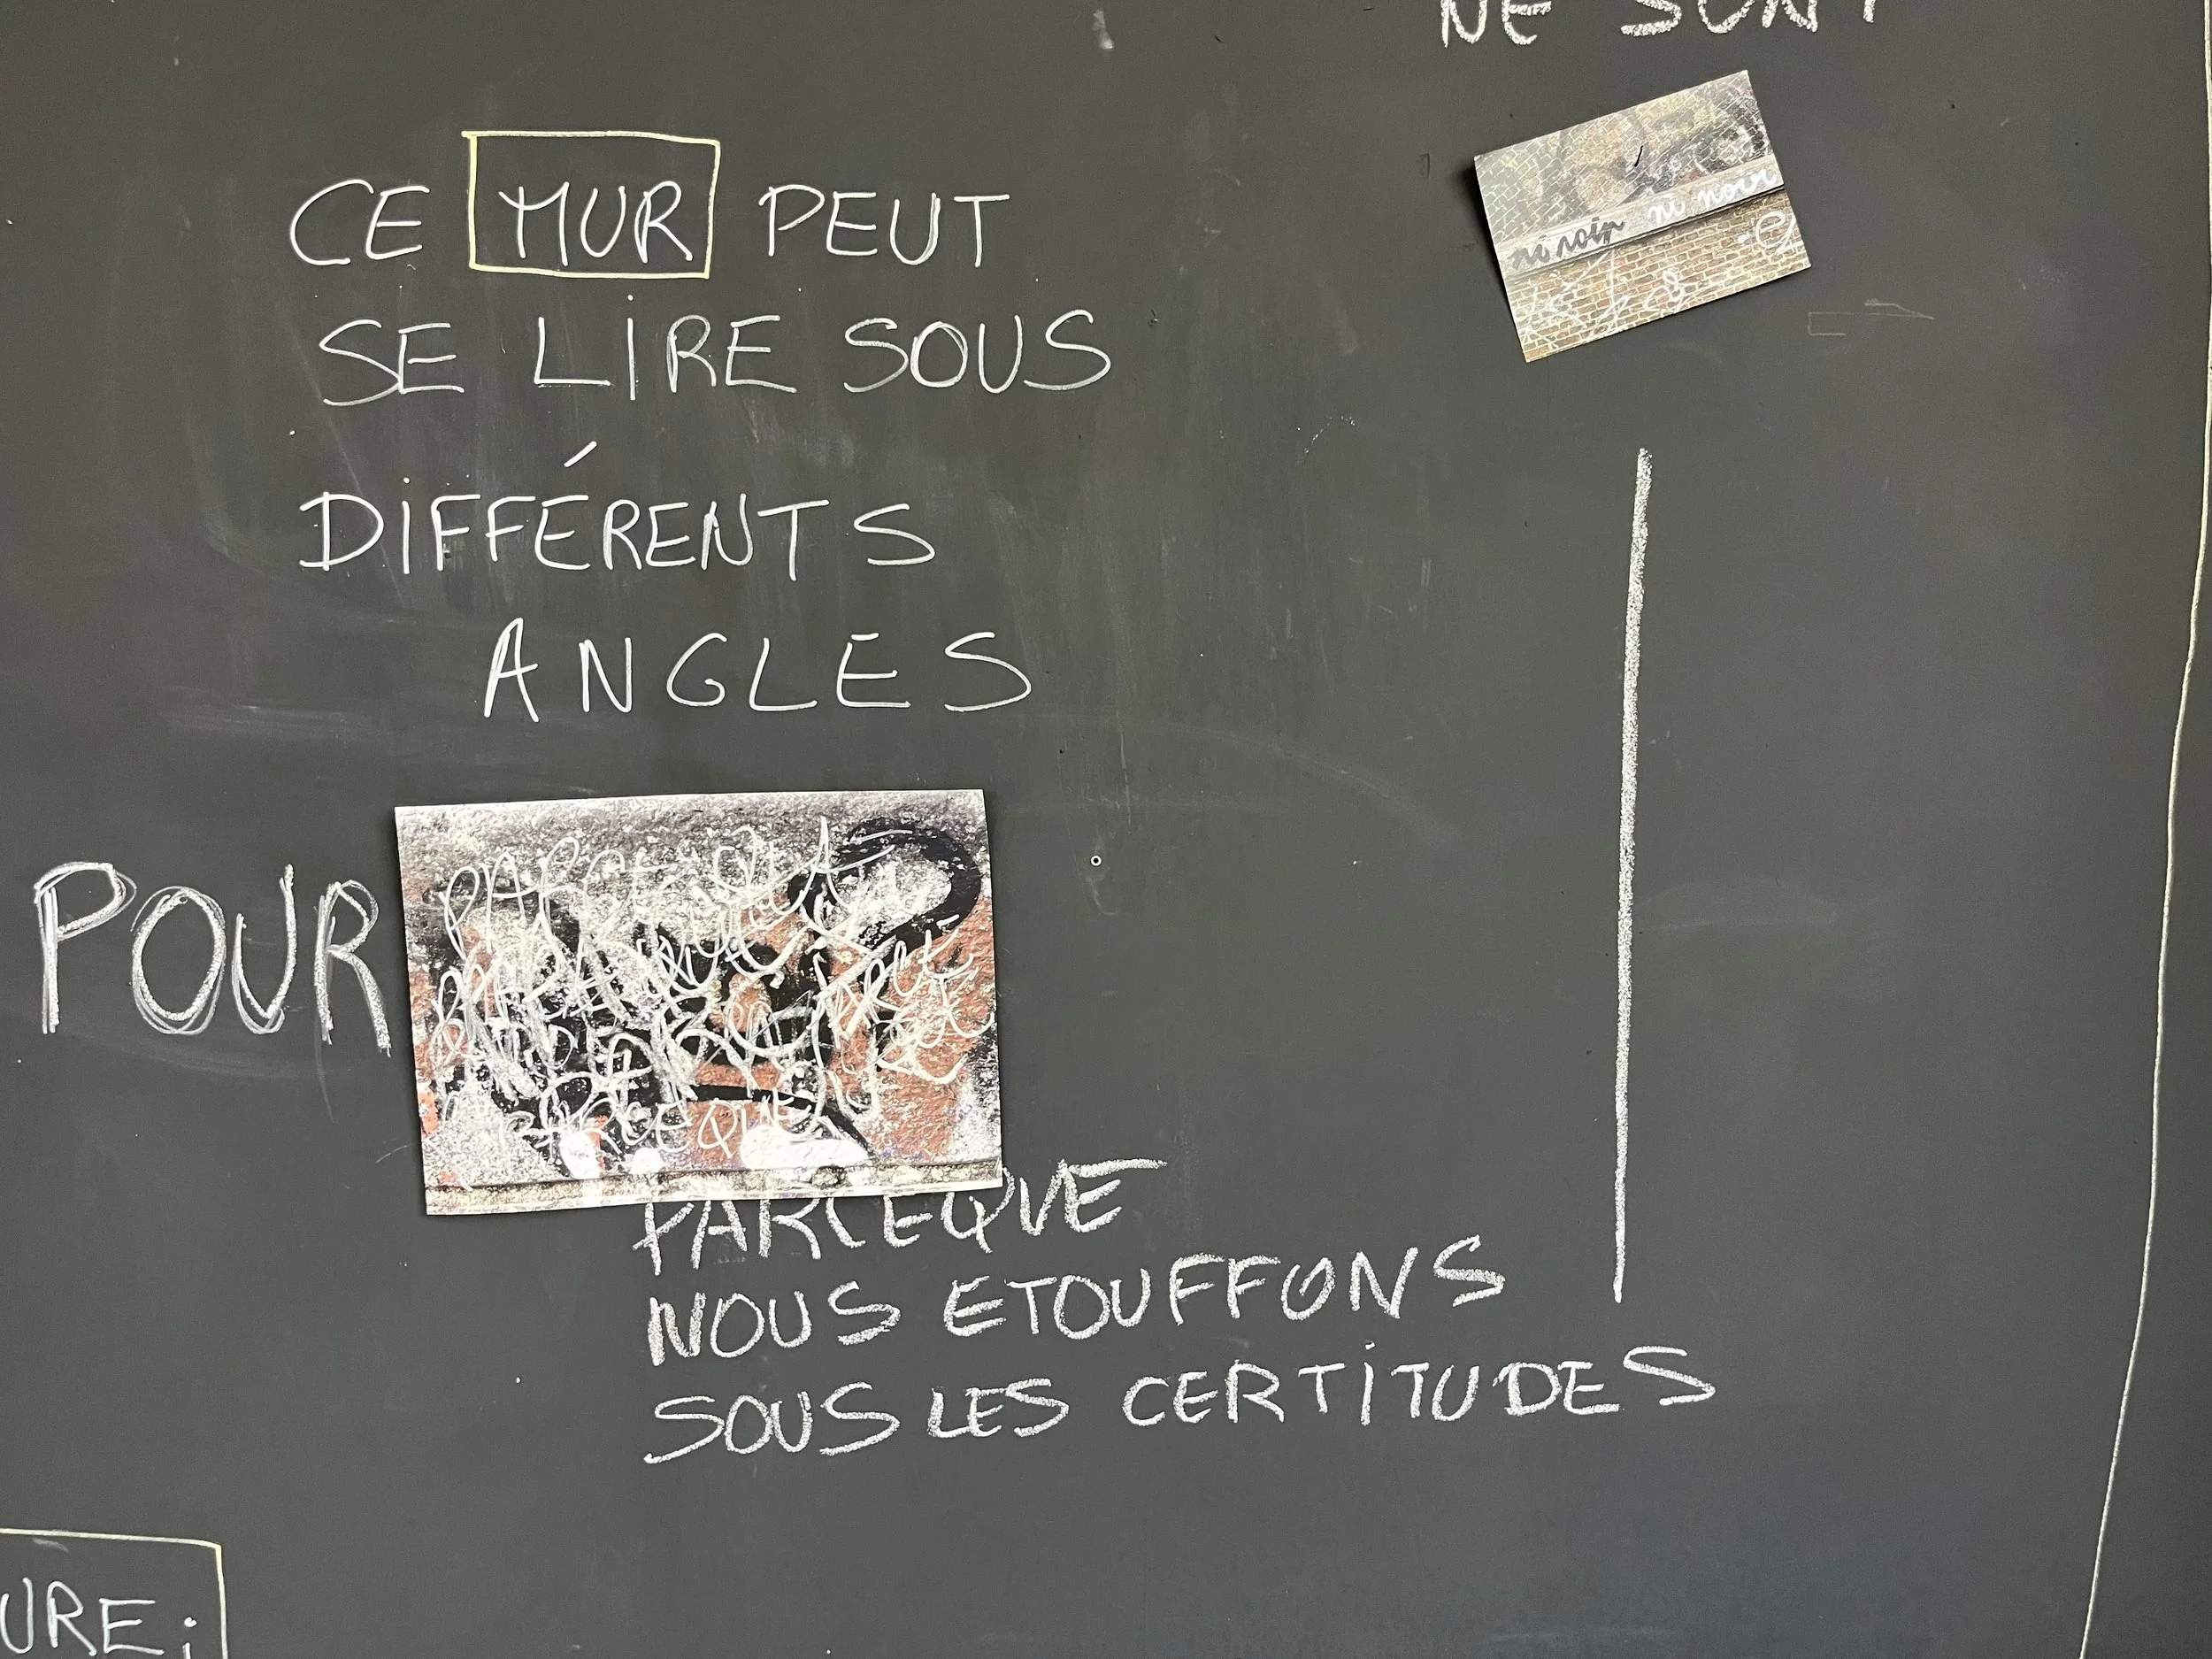 NE SONT
CE MUR PEUT
SE LIRE SOUS
DIFFÉRENTS
ANGLES
ni noir ni noir
POUR
PARCEQUE
PARCEQUE
PARCEQUE
NOUS ETOUFFONS
SOUS LES CERTITUDES
URE;